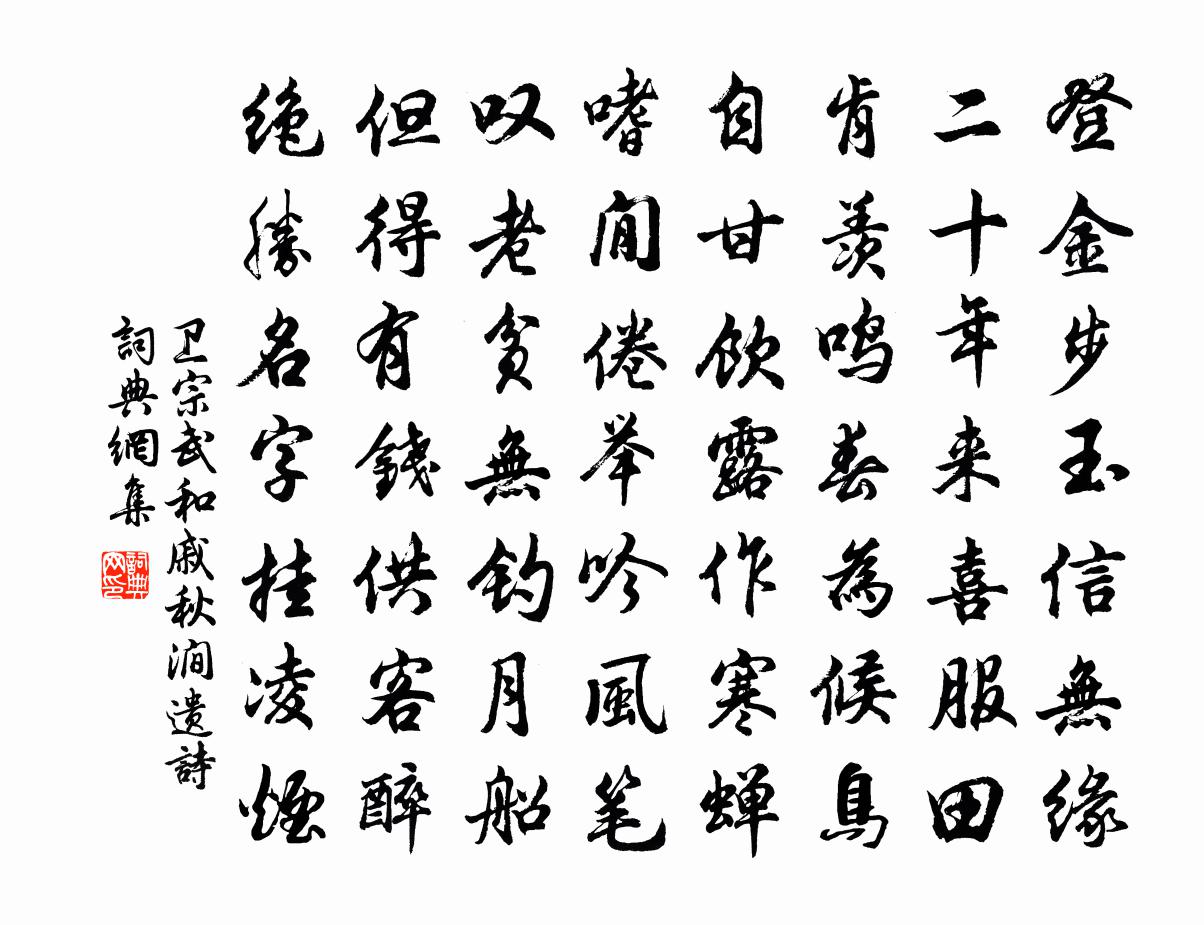 登金步玉信無緣
二十年来喜服田
肯羨鳴春為候鳥
自甘飲露作寒蝉
嗜閒倦举吟風笔
叹老貧無釣月船
但得有錢供客醉
絶勝名字挂凌煙
卫宗武和戚秋澗遗詩
詞典網集
詞典网印